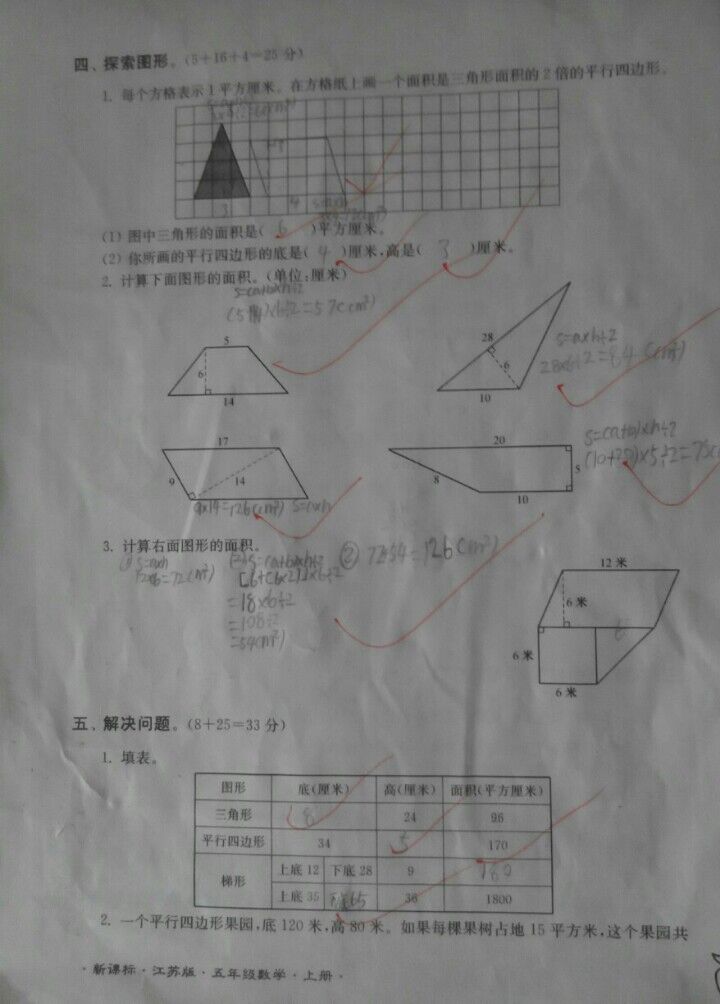 四、探索图形。(5+16+4=25分)
1. 每个方格表示1平方厘米。在方格纸上画一个面积是三角形面积的2倍的平行四边形。
3
4
(1) 图中三角形的面积是( 6 )平方厘米。
(2) 你所画的平行四边形的底是( 4 )厘米,高是( 3 )厘米。
2. 计算下面图形的面积。(单位:厘米)
5
6
14
28
6
10
S=a×h÷2
28×6÷2=84(cm²)
17
9
14
9×14=126(cm²) S=a×h
20
8
5
10
3. 计算右面图形的面积。
(1) S=a×h
12×6=72(m²)
[6+(6×2)]×6÷2
=18×6÷2
=108÷2
=54(m²)
12米
6米
6米
6米
五、解决问题。(8+25=33分)
1. 填表。
图形 底(厘米) 高(厘米) 面积(平方厘米)
三角形 8 24 96
平行四边形 34 5 170
梯形 上底12 下底28 9 180
上底35 65 36 1800
2. 一个平行四边形果园,底120米,高80米。如果每棵果树占地15平方米,这个果园共
·新课标·江苏版·五年级数学·上册·